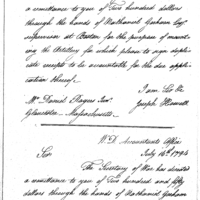 a remittance to you of Two hundred dollars
through the hands of Nathaniel Gorham Esqr
Supervisor at Boston for the purpose of mount-
ing the Artillery for which please to sign duplic-
ate receipts to be accountable for the due app-
lication thereof.
I am Sir &c
Mr Daniel Rogers Junr
Joseph Howell
Gloucester - Massachusetts
W.D. Accountants Office
July 16th 1794
Sir
The Secretary of War has directed
a remittance to you of Two hundred and fifty
dollars through the hands of Nathaniel Gorham